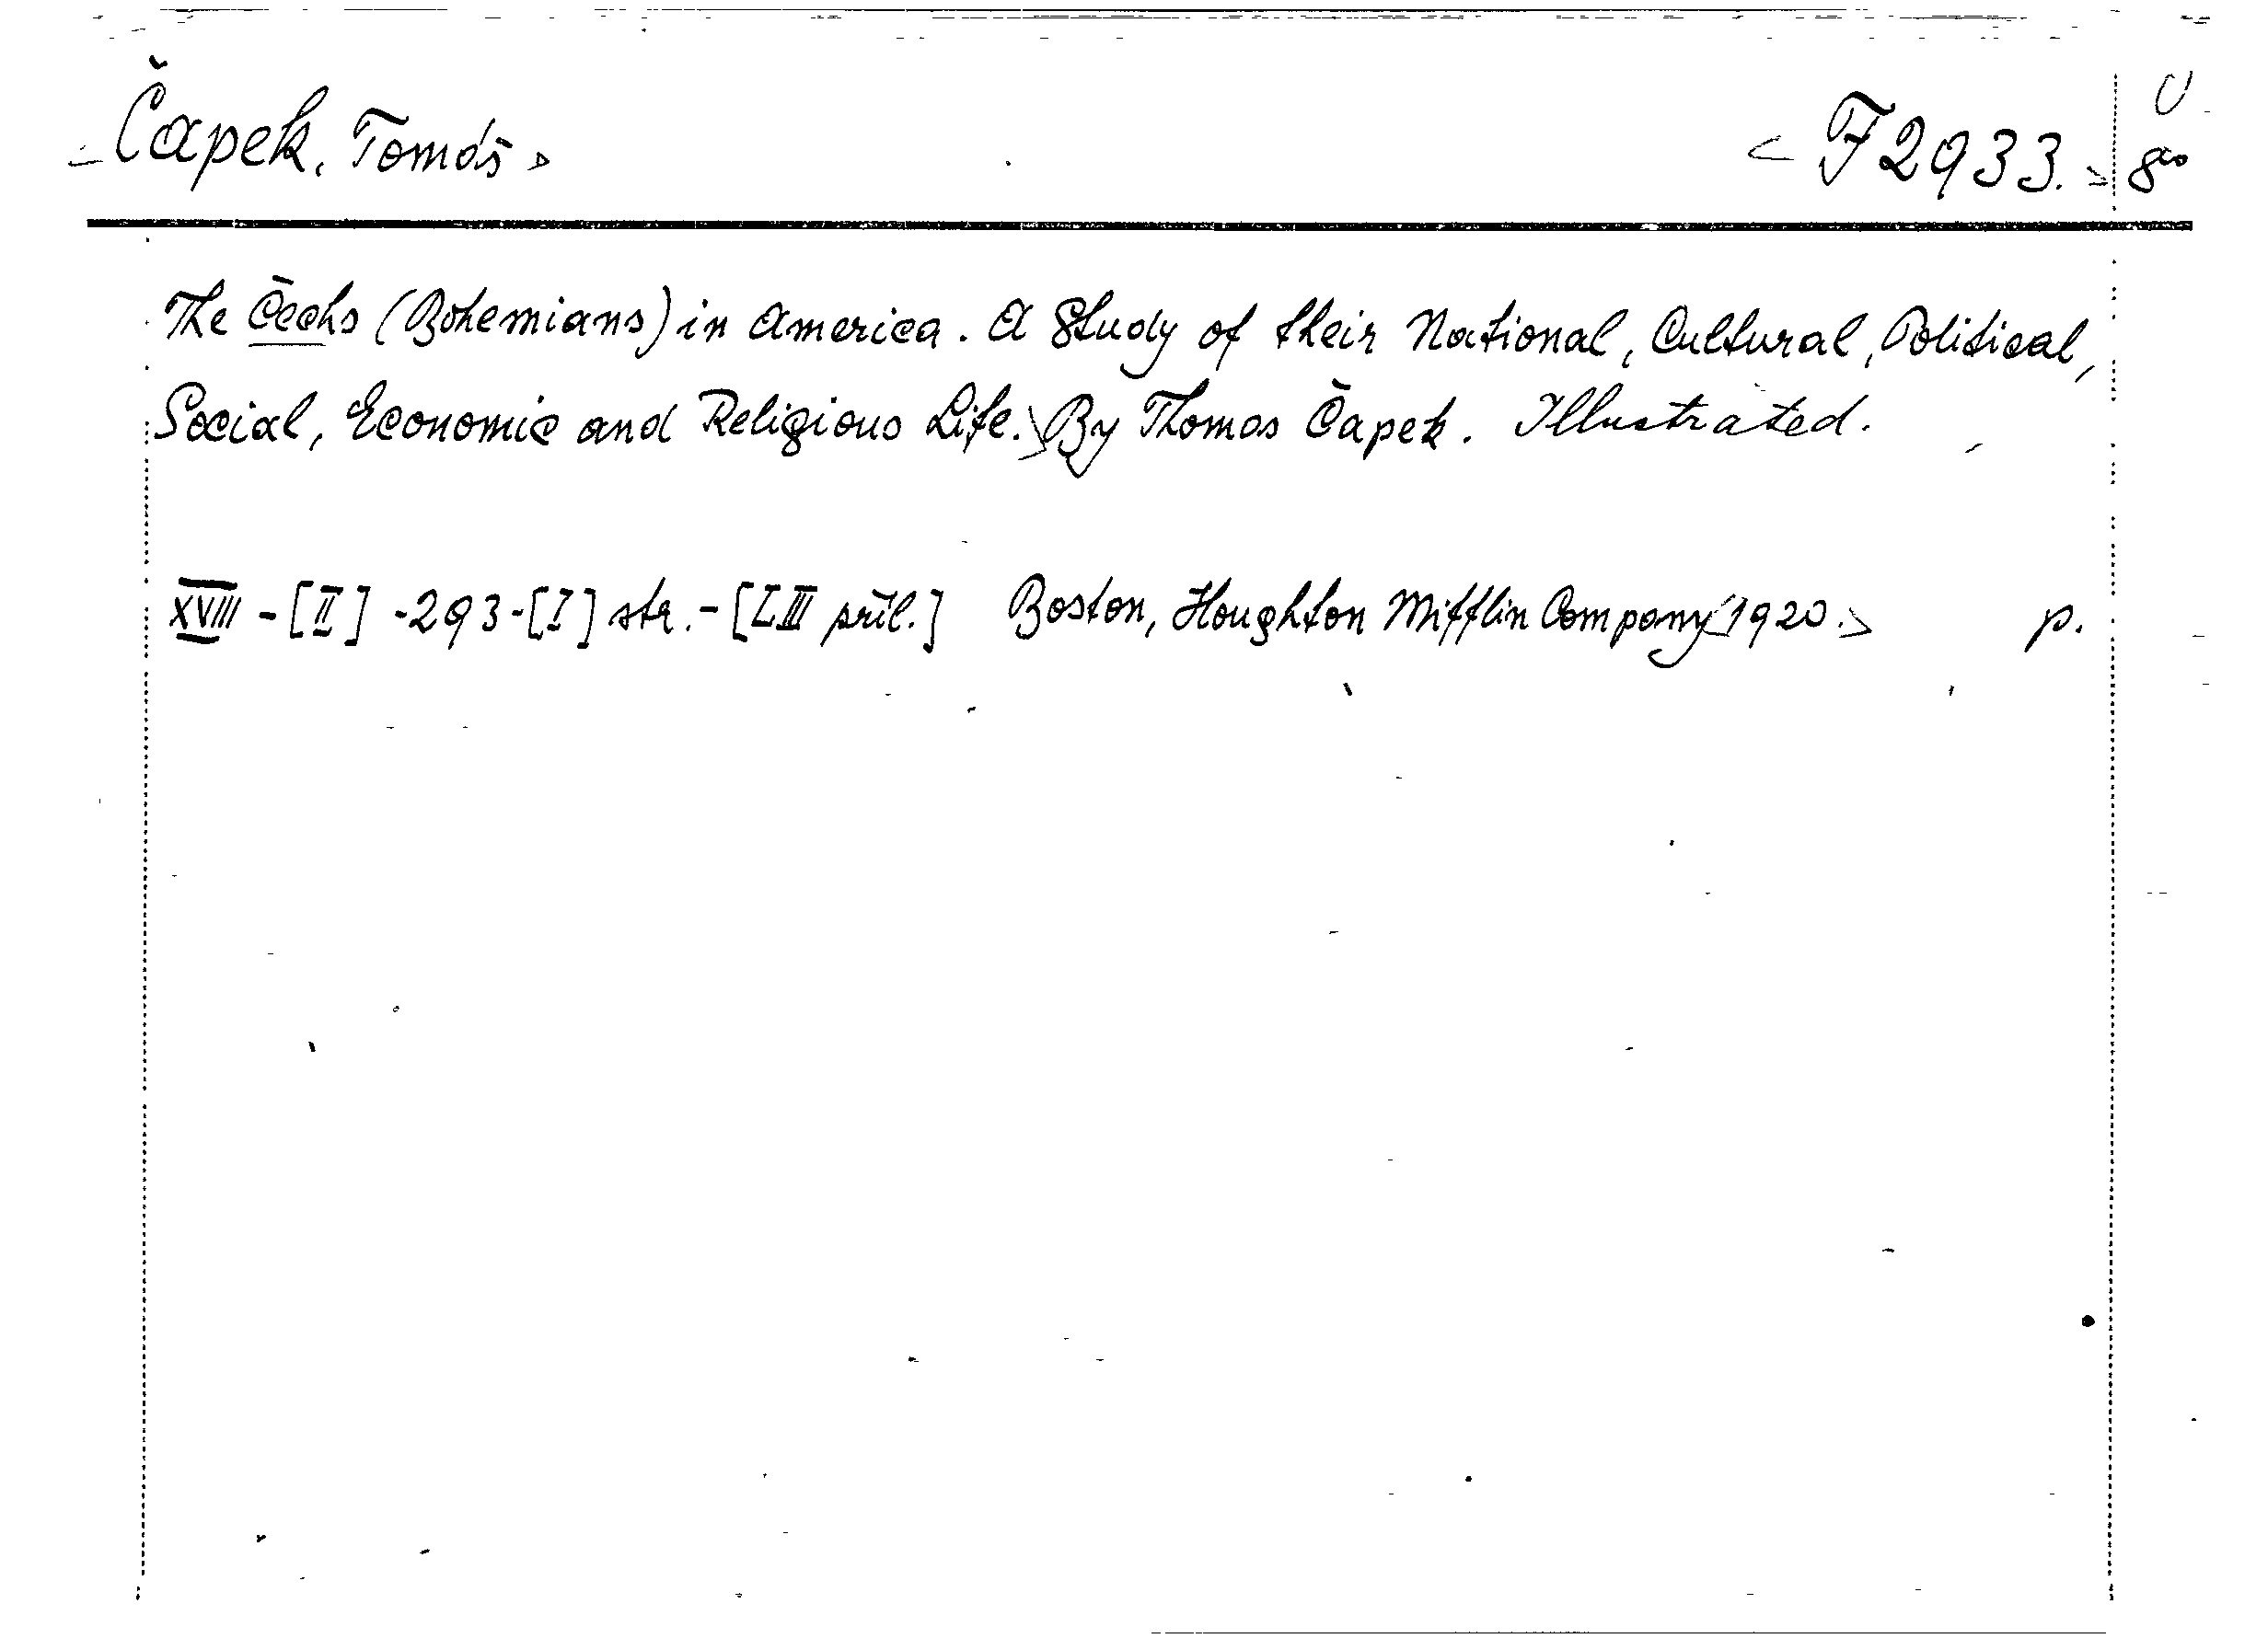 Čapek, Tomáš
F 2933. 8°
The Čechs (Bohemians) in America. A Study of their National, Cultural, Political,
Social, Economic and Religious Life. By Thomas Čapek. Illustrated.
XVIII - [II] - 293 - [I] str. - [LIII příl.] Boston, Houghton Mifflin Company 1920. p.